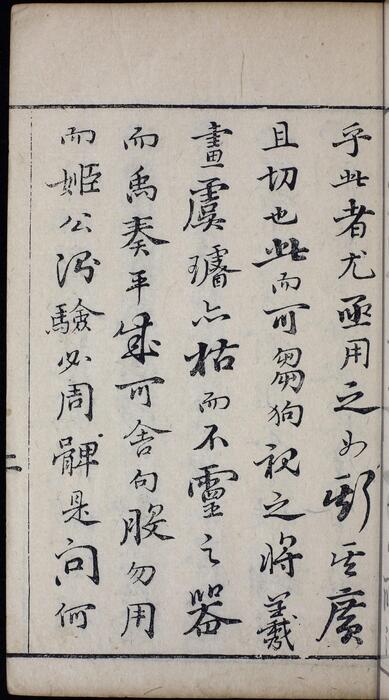 乎此者尤亟用之如斯其廣
且切也此而可芻狗視之將羲
畫虞璿亦枯而不靈之器
而禹奏平成可舍句股勿用
而姬公測驗必周髀是問何
二